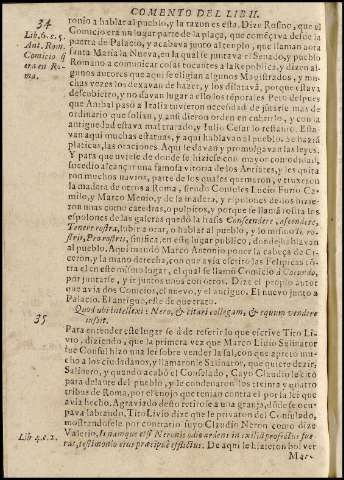 COMENTO DEL LIB II.
34
Lib. 6. c. 5.
Ant. Rom.
Comicio q̃
era en Ro-
ma.
tonio a hablar al pueblo, y la razon es esta. Dize Rosino, que el
Comicio era un lugar parte de la plaça, que començava desde la
puerta de Palacio, y acabava junto al templo, que llaman aora
santa Maria la Nueva, en la qual se juntava el Senado, y pueblo
Romano a comunicar cosas tocantes a la Republica, y dizen al-
gunos autores que aqui se eligian algunos Magistrados, y mu-
chas vezes los dexavan de hazer, y los dilatavã, porque estava
descubierto, y no davan lugar a ello los téporales. Pero despues
que Anibal pasò a Italia tuvieron necesidad de jútarse mas de
ordinario que solian, y ansi dieron orden en cubrirlo, y con la
antiguedad estava maltratado, y Julio Cesar lo restaurò. Esta-
van aqui muchas estatuas, y aqui hablavan al pueblo. Se hazian
platicas, las oraciones. Aqui se davan y promulgavan las leyes.
Y para que un
sucedio alcançar una famosa vitoria de los Anciates, y les quita
ron muchos navios, parte de los cuales quemaron, y truxeron
la madera de otros a Roma, siendo Consules Lucio Furio Ca-
milo, y Marco Menio, y de la madera, y espolones de los
zieron unas como catedras, o pulpitos, porque se llamã rostra los
espolones de las galeras quedò la frasis Conscendere, ascendere,
Tenere rostra, subir a orar, o hablar al pueblo, y lo mismo
Pro rostris, significa, en este lugar publico, donde hablavan
al pueblo. Aqui mandò Marco Antonio poner la cabeça de Ci-
ceron, y la mano derecha, con que avia escrito las Felipicas có-
tra el en este mismo lugar, el qual se llamò Comicio à Coeundo,
por juntarse, y ir juntos unos con otros. Dize el propio autor
que avia dos Comicios, el nuevo, y el antiguo. El nuevo junto a
Palacio. El antiguo, este de que trato.
35
Quod ubi intellexit Nero, & irari collegam, & equum vendere
iussit.
Para entender este lugar se à de referir lo que escrive Tito Li-
vio, diziendo, que la primera vez que Marco Libio Salinator
fue Consul hizo una lei sobre vender la sal, con que apretò mu-
cho a los ciudadanos, y llamaronle Salinator, que quiere dezir,
Salinero, y quando acabò el Consulado, Cayo Claudio le citò
para delante del pueblo, y le condenaron los treinta y quatro
tribus de Roma, por el enojo que tenian contra el por la lei que
avia hecho. Agraviado desto retirose a una granja, donde se ocu-
pava labrando. Tito Livio dize que le privaron del Consulado,
mostrandosele por contrario suyo Claudio Neron como dize
Lib. 4. c. 2.
Valerio, Is namque etsi Neronis odio ardens in exilium profectus fue-
rat, testimonio eius præcipuè afflictus. De aqui le hizieron bolver
Mar-